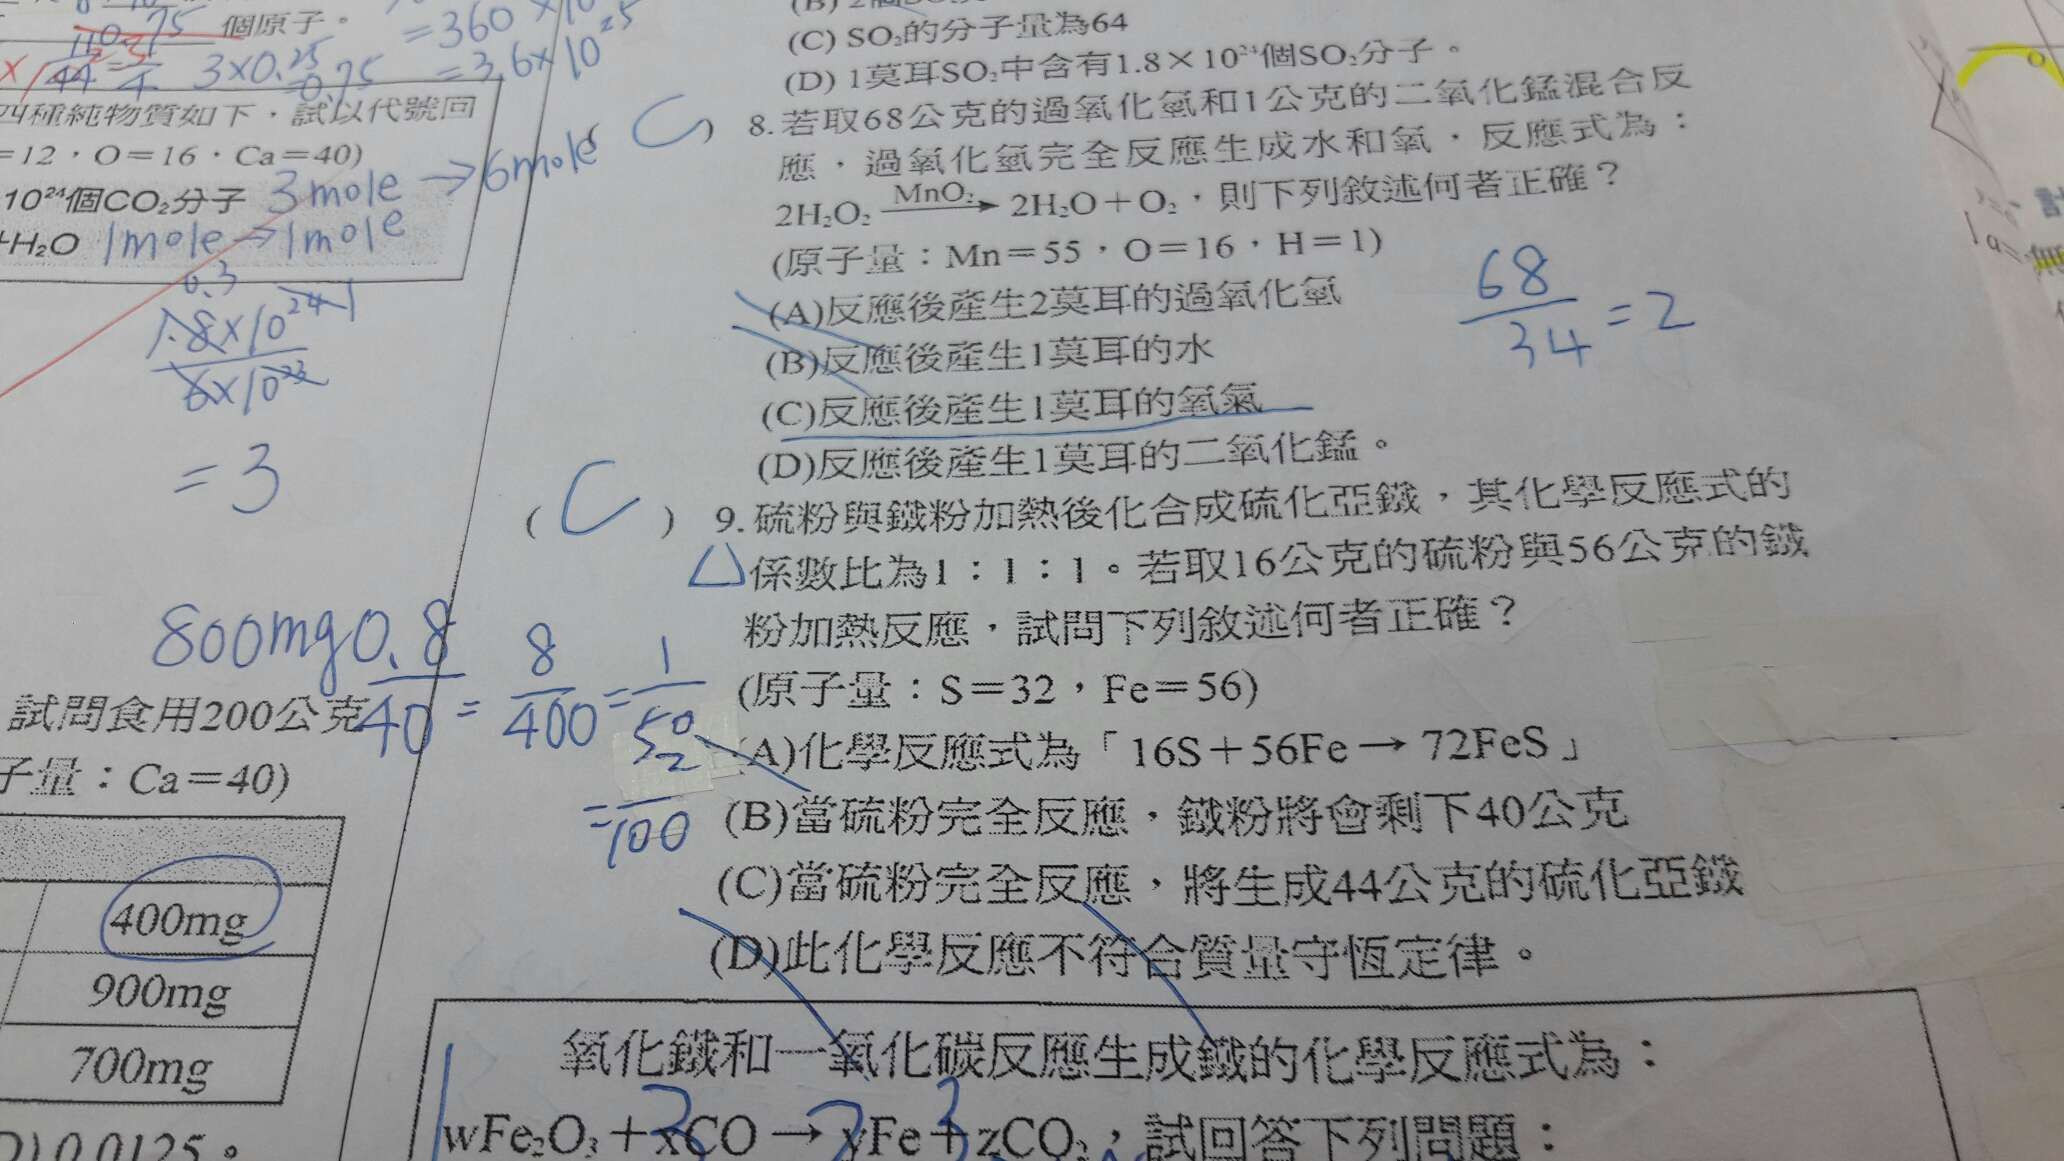 個原子。
=360×10
=3.6×10²⁵
44
4
3×0.25
0.75
四種純物質如下，試以代號回
=12，O=16，Ca=40)
10²⁴個CO₂分子 3mole→6mole
+H₂O 1mole→1mole
0.3
1.8×10²⁴⁻¹
6×10²³
=3
800mg
0.8/40=8/400=1/50
=2/100
試問食用200公克
子量：Ca=40)
400mg
900mg
700mg
D) 0.0125。
(C) SO₂的分子量為64
(D) 1莫耳SO₂中含有1.8×10²⁴個SO₂分子。
C ) 8. 若取68公克的過氧化氫和1公克的二氧化錳混合反
應，過氧化氫完全反應生成水和氧，反應式為：
2H₂O₂ MnO₂→ 2H₂O+O₂，則下列敘述何者正確？
(原子量：Mn=55，O=16，H=1)
(A)反應後產生2莫耳的過氧化氫
(B)反應後產生1莫耳的水
(C)反應後產生1莫耳的氧氣
(D)反應後產生1莫耳的二氧化錳。
68/34=2
( C ) 9. 硫粉與鐵粉加熱後化合成硫化亞鐵，其化學反應式的
△係數比為1：1：1。若取16公克的硫粉與56公克的鐵
粉加熱反應，試問下列敘述何者正確？
(原子量：S=32，Fe=56)
(A)化學反應式為「16S+56Fe→72FeS」
(B)當硫粉完全反應，鐵粉將會剩下40公克
(C)當硫粉完全反應，將生成44公克的硫化亞鐵
(D)此化學反應不符合質量守恆定律。
氧化鐵和一氧化碳反應生成鐵的化學反應式為：
wFe₂O₃+xCO→yFe+zCO₂，試回答下列問題：
1 3 2 3